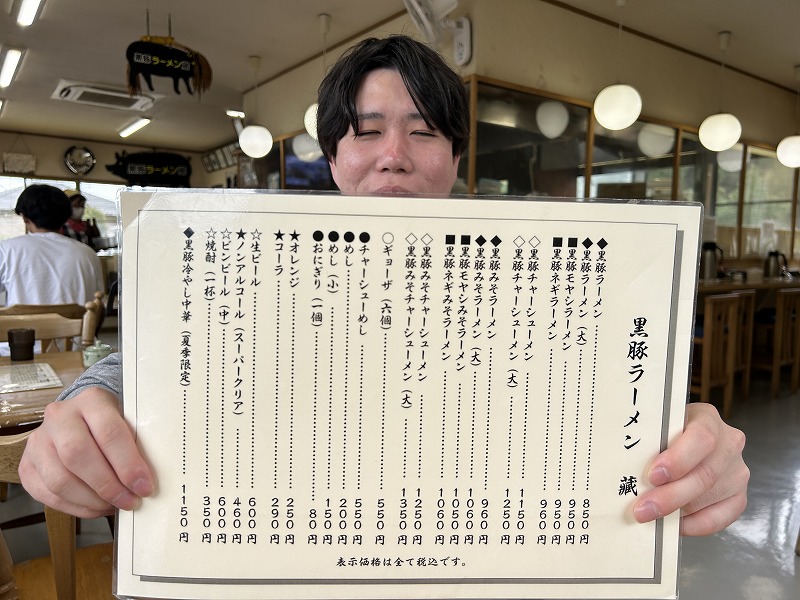 黒豚ラーメン
黒豚ラーメン 蔵
◆黒豚ラーメン……850円
◆黒豚ラーメン（大）……950円
■黒豚モヤシラーメン……950円
■黒豚ネギラーメン……960円
◇黒豚チャーシューメン……1150円
◇黒豚チャーシューメン（大）……1250円
◆黒豚みそラーメン……960円
◆黒豚みそラーメン（大）……1060円
■黒豚モヤシみそラーメン……1050円
■黒豚ネギみそラーメン……1060円
◇黒豚みそチャーシューメン……1250円
◇黒豚みそチャーシューメン（大）……1350円
○ギョーザ（六個）……550円
●チャーシューめし……550円
●めし……200円
●めし（小）……150円
●おにぎり（一個）……80円
★オレンジ……250円
★コーラ……290円
☆生ビール……600円
★ノンアルコール（スーパークリア）……460円
☆ビンビール（中）……600円
☆焼酎（一杯）……350円
◆黒豚冷やし中華（夏季限定）……1150円
表示価格は全て税込です。